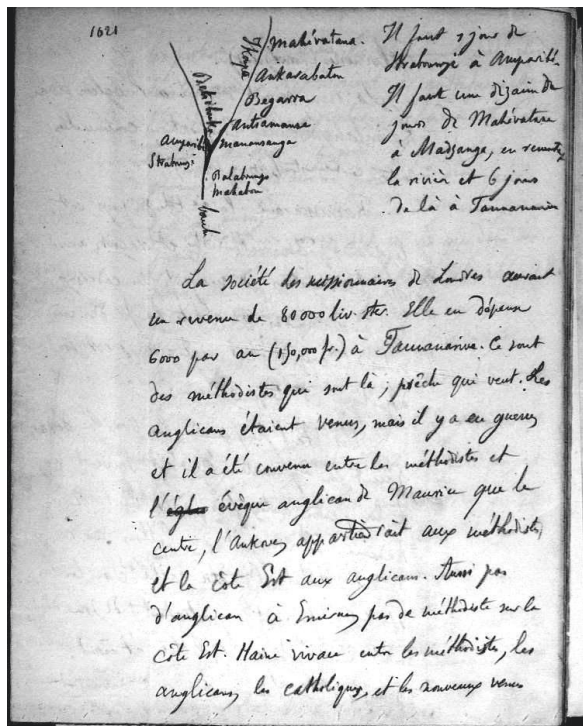 1621
Mahévatana.
Ikopa
Ankarabaton
Betsiluka
Begarra
Antiamanse
Manansanga
Amparibi
Strabonzi
Balabongo
Mahabou
bouch
Il faut 1 jour de
Strabonzi à Amparibi.
Il faut une dizaine de
jours de Mahévatana
à Madsanga, en
la rivière et 6 jours
de là à Tananarive
La société des missionnaires de Londres aurait
un revenu de 80000 liv. ster. Elle en dépense
6000 par an (150,000 fr.) à Tananarive. Ce sont
des méthodistes qui sont là ; prêche qui veut. Les
anglicans étaient venus, mais il y a eu guerres
et il a été convenu entre les méthodistes et
l'église évêque anglican de Maurice que le
centre, l'Ankove, appartiendrait aux méthodistes,
et la côte Est aux anglicans. Aussi pas
d'anglican à Emirne, pas de méthodiste sur la
côte Est. Haine vivace entre les méthodistes, les
anglicans, les catholiques, et les nouveaux venus